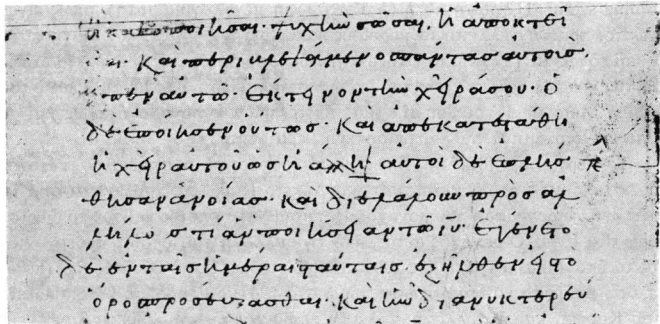 ἢ κακοποιῆσαι· ψυχὴν σῶσαι, ἢ ἀποκτεῖ
ναι· καὶ περιβλεψάμενος πάντας αὐτοὺς
εἶπεν αὐτῷ· ἔκτεινον τὴν χεῖρά σου· ὁ
δὲ ἐποίησεν οὕτως· καὶ ἀπεκατεστάθη
ἡ χεὶρ αὐτοῦ ὡς ἡ ἄλλη αὐτοὶ δὲ ἐπλήσ
θησαν ἀνοίας· καὶ διελάλουν πρὸς ἀλ
λήλους τί ἂν ποιήσειαν τῷ ἰῦ· ἐγένετο
δὲ ἐν ταῖς ἡμέραις ταύταις ἐξῆλθεν εἰς τὸ
ὄρος προσεύξασθαι· καὶ ἦν διανυκτερεύ